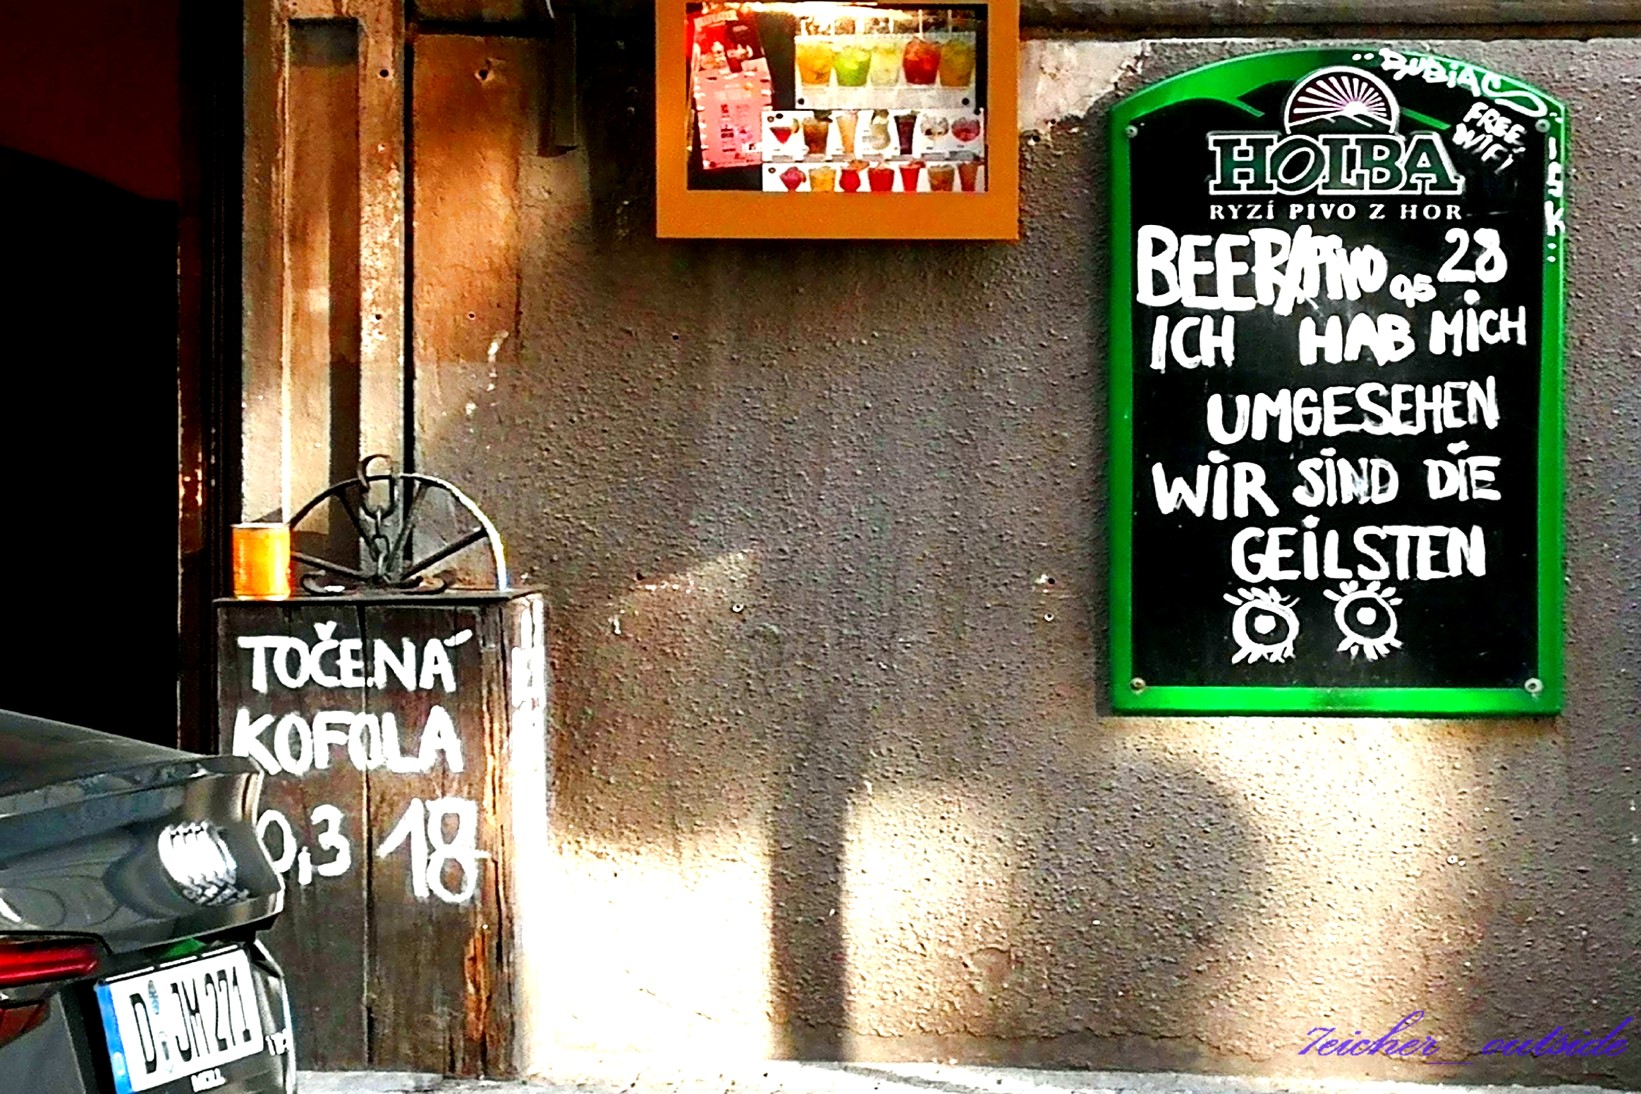 RUBIAS
FREE
WIFI
HOLBA
RYZÍ PIVO Z HOR
BEER/PIVO 0,5 28
ICH HAB MICH
UMGESEHEN
WIR SIND DIE
GEILSTEN
TOČENÁ
KOFOLA
0,3 18
D JM 271
7eicher_outside